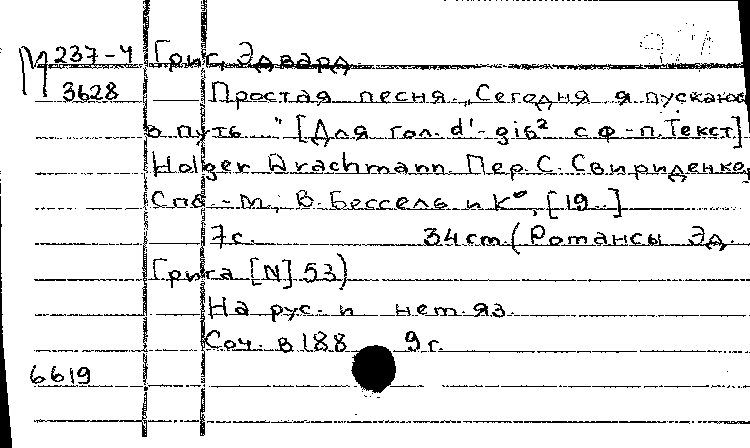 М 237-4 Григ, Эдвард
3628 Простая песня. „Сегодня я пускаюсь
в путь..." [Для гол. d'-gis² с ф-п. Текст]
Holger Drachmann. Пер. С. Свириденко,
Спб.-М., В. Бессель и К°, [19..]
7 с. 34 cm (Романсы Эд.
Грига [N] 53)
На рус. и нем. яз.
Соч. в 1889 г.
6619